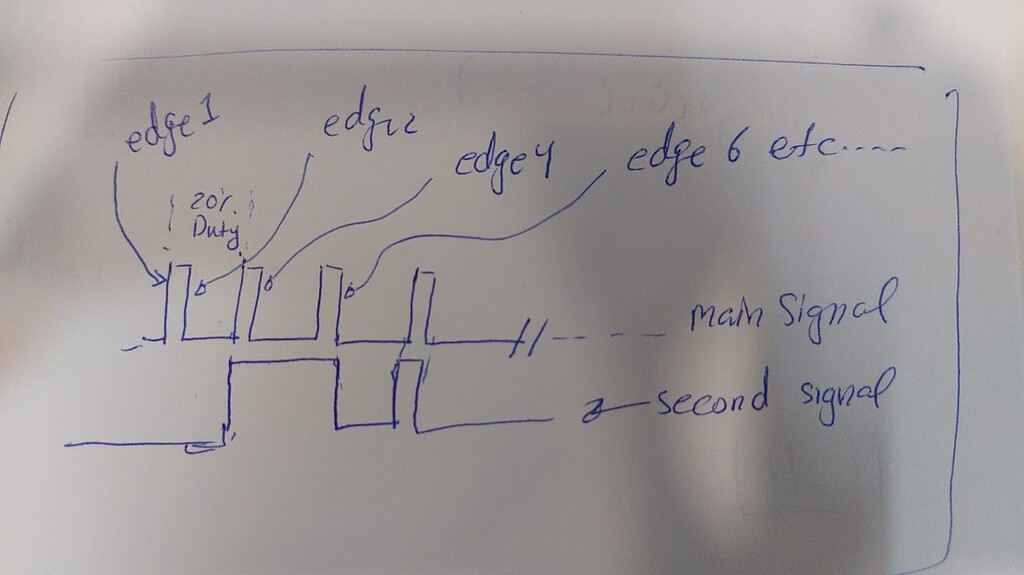 edge 1
edge 2
edge 4
edge 6 etc.....
20%.
Duty
main Signal
second signal